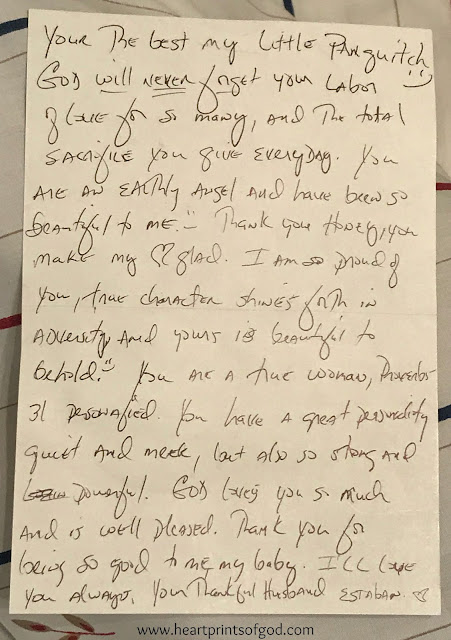 Your The best my Little Panguitch
God will never forget your Labor
of love for so many, and The total
sacrifice you give everyday. You
are an earthly angel and have been so
beautiful to me. Thank you Honey, you
make my ♡ glad. I am so proud of
you, true character shines forth in
adversity, and yours is beautiful to
behold. You are a true woman, Proverbs
31 personafied. You have a great personality
quiet and meek, but also so strong and
powerful. God loves you so much
and is well pleased. Thank you for
being so good to me, my baby. I'll love
you always, Your Thankful Husband Estaban. ♡
www.heartprintsofgod.com